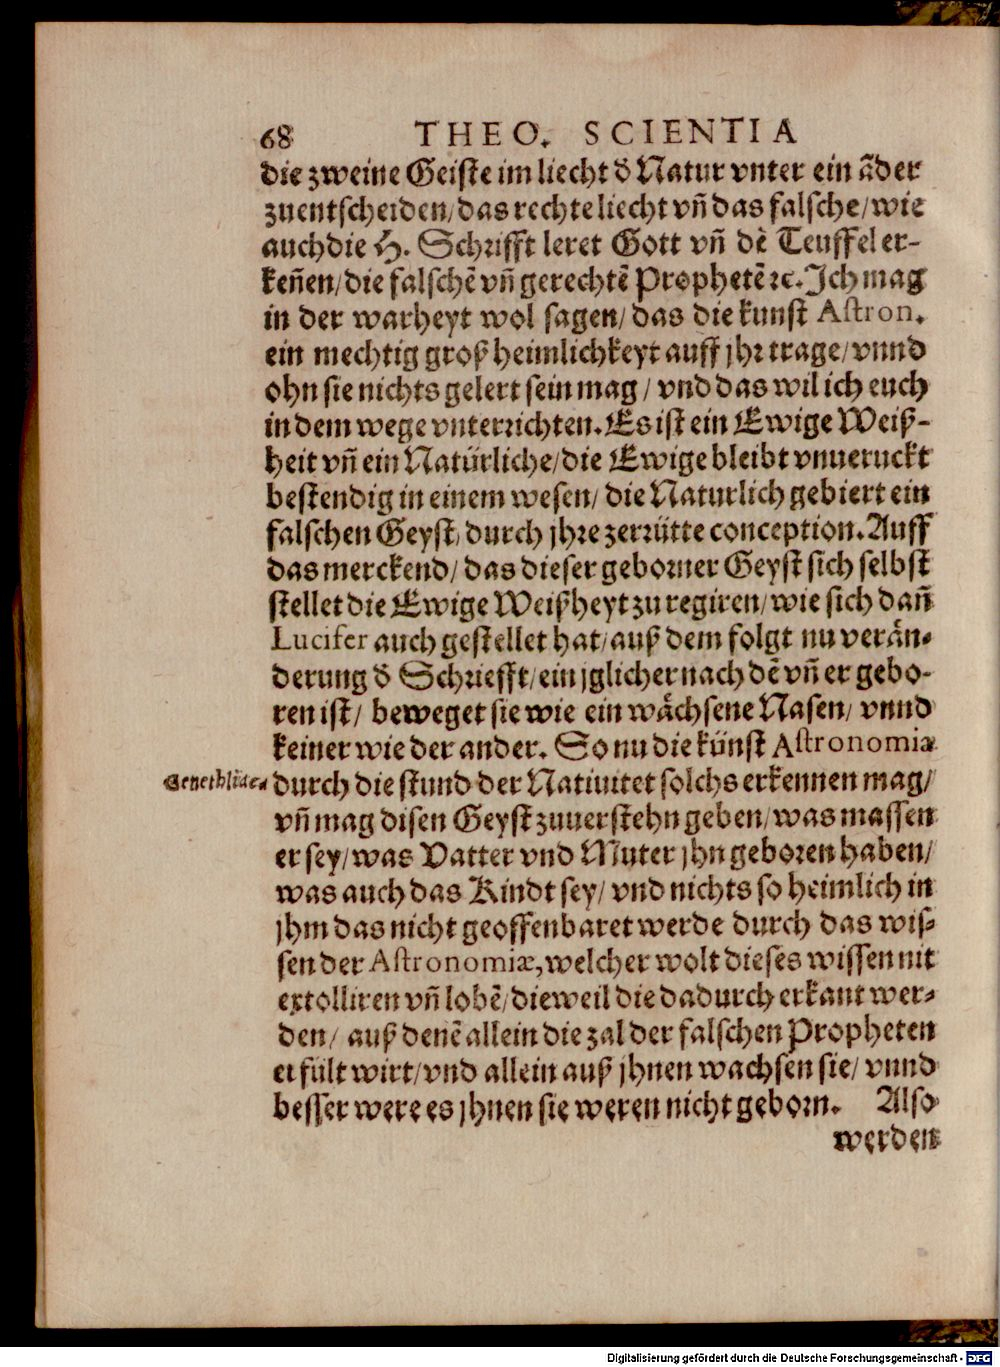 68 THEO. SCIENTIA
die zweine Geiste im liecht d̕ Natur vnter ein ãder
zuentscheiden/ das rechte liecht vñ das falsche/ wie
auch die H. Schrifft leret Gott vñ dẽ Teuffel er-
keñen/ die falschẽ vñ gerechtẽ Prophetẽ ꝛc. Ich mag
in der warheyt wol sagen/ das die kunst Astron.
ein mechtig groß heimlichkeyt auff jhr trage/ vnnd
ohn sie nichts gelert sein mag/ vnd das wil ich euch
in dem wege vnterrichten. Es ist ein Ewige Weiß-
heit vñ ein Natürliche/ die Ewige bleibt vnueruckt
bestendig in einem wesen/ die Naturlich gebiert ein
falschen Geyst/ durch jhre zerrütte conception. Auff
das merckend/ das dieser geborner Geyst sich selbst
stellet die Ewige Weißheyt zu regiren/ wie sich dañ
Lucifer auch gestellet hat/ auß dem folgt nu verån-
derung d̕ Schriefft/ ein jglicher nach dẽ vñ er gebo-
ren ist/ beweget sie wie ein wåchsene Nasen/ vnnd
keiner wie der ander. So nu die künst Astronomiæ
durch die stund der Natiuitet solchs erkennen mag/
vñ mag disen Geyst zuuerstehn geben/ was massen
er sey/ was Vatter vnd Muter jhn geboren haben/
was auch das Kindt sey/ vnd nichts so heimlich in
jhm das nicht geoffenbaret werde durch das wis-
sen der Astronomiæ, welcher wolt dieses wissen nit
extolliren vñ lobẽ/ dieweil die dadurch erkant wer-
den/ auß denẽ allein die zal der falschen Propheten
erfült wirt/ vnd allein auß jhnen wachsen sie/ vnnd
besser were es jhnen sie weren nicht geborn. Also
werden
Digitalisierung gefördert durch die Deutsche Forschungsgemeinschaft - DFG